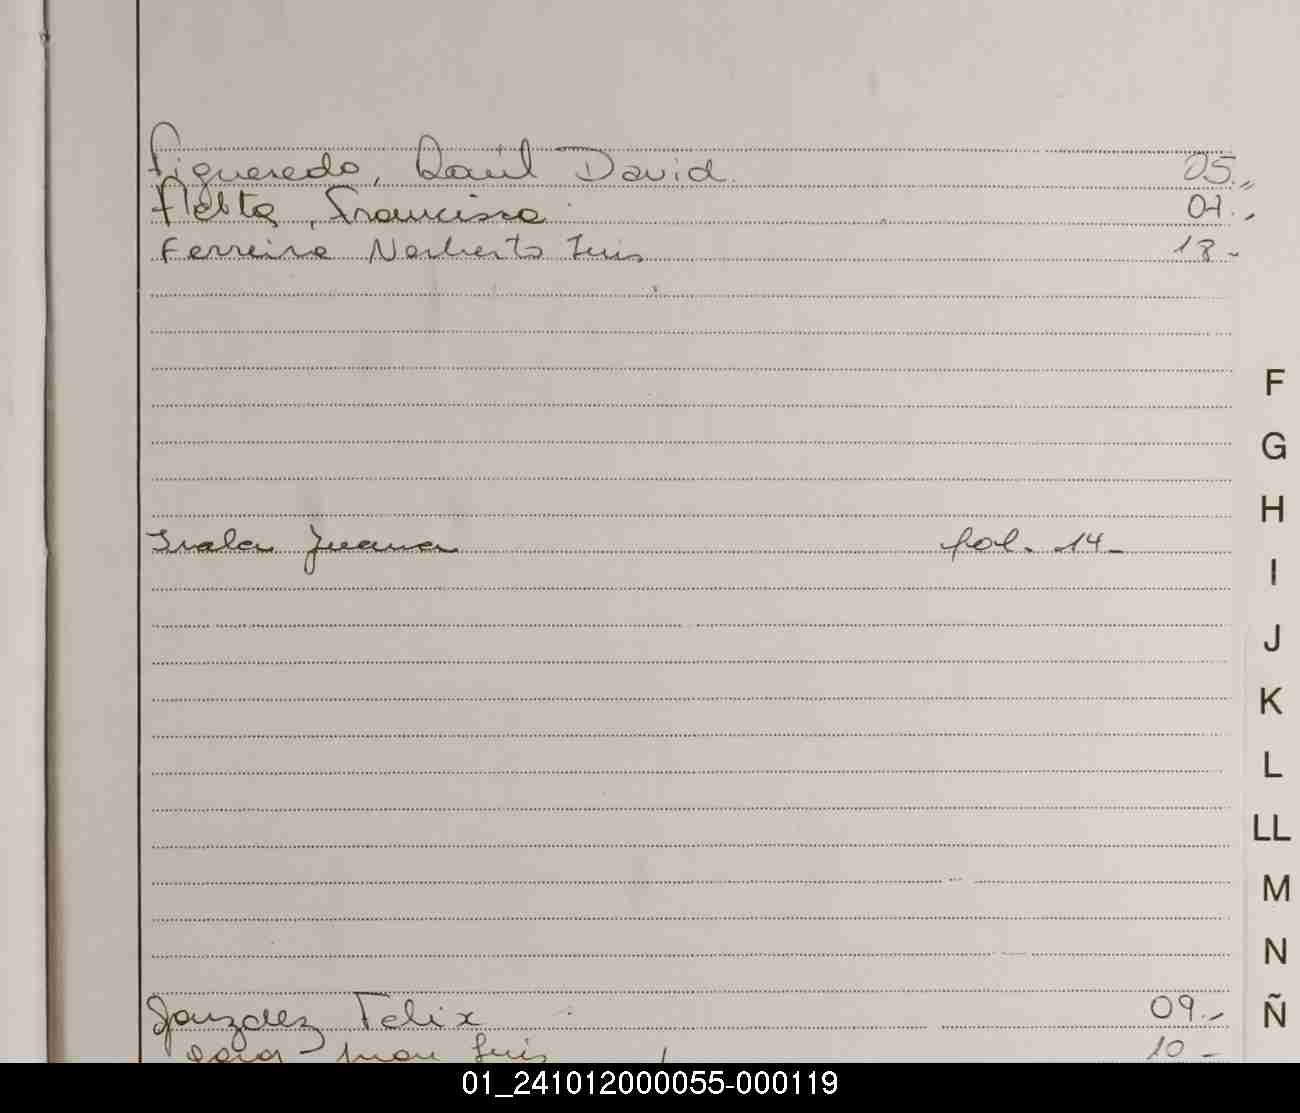 Figueredo, Raúl David. 05.,,
Fleita, Francisca 07.,
Ferreira Norberto Luis 18-
F
G
H
Irala Juana fol. 14-
I
J
K
L
LL
M
N
Gonzalez Felix 09.-
Ñ
Juan Luis 10-
01_241012000055-000119